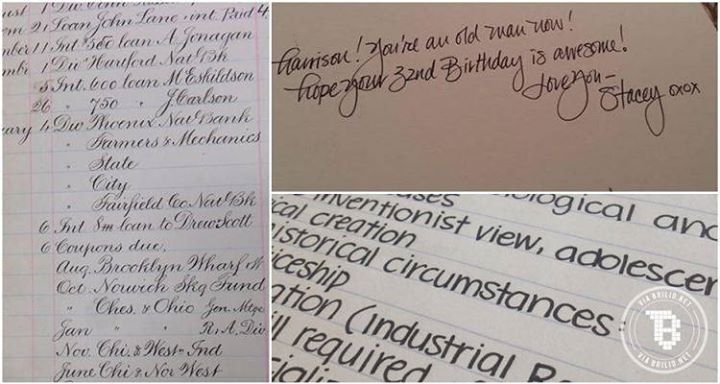 1 Div
21 Loan John Lane, int. Paid 4
11 Int $560 loan A. Jonagan
1 Div Hartford Natl Bk
5 Int. 600 loan M Eskildson
26 " 750 " J. Carlson
4 Div Phoenix Natl Bank
" Farmers & Mechanics
" State
" City
" Fairfield Co Natl Bk
6 Int 8m loan to Drew Scott
6 Coupons due,
Aug. Brooklyn Wharf
Oct. Norwich Skg Fund
" Ches. & Ohio Gen. Mtge
Jan " " R, A, Div
Nov. Chi. & West-Ind
June Chi & Nor West
Harrison! You're an old man now!
Hope your 32nd Birthday is awesome!
Love you-
Stacey oxox
ological and
inventionist view, adolescen
cal creation
istorical circumstances:
iceship
ation (industrial
ll required
VIA BRILIO.NET
VIA BRILIO.NET